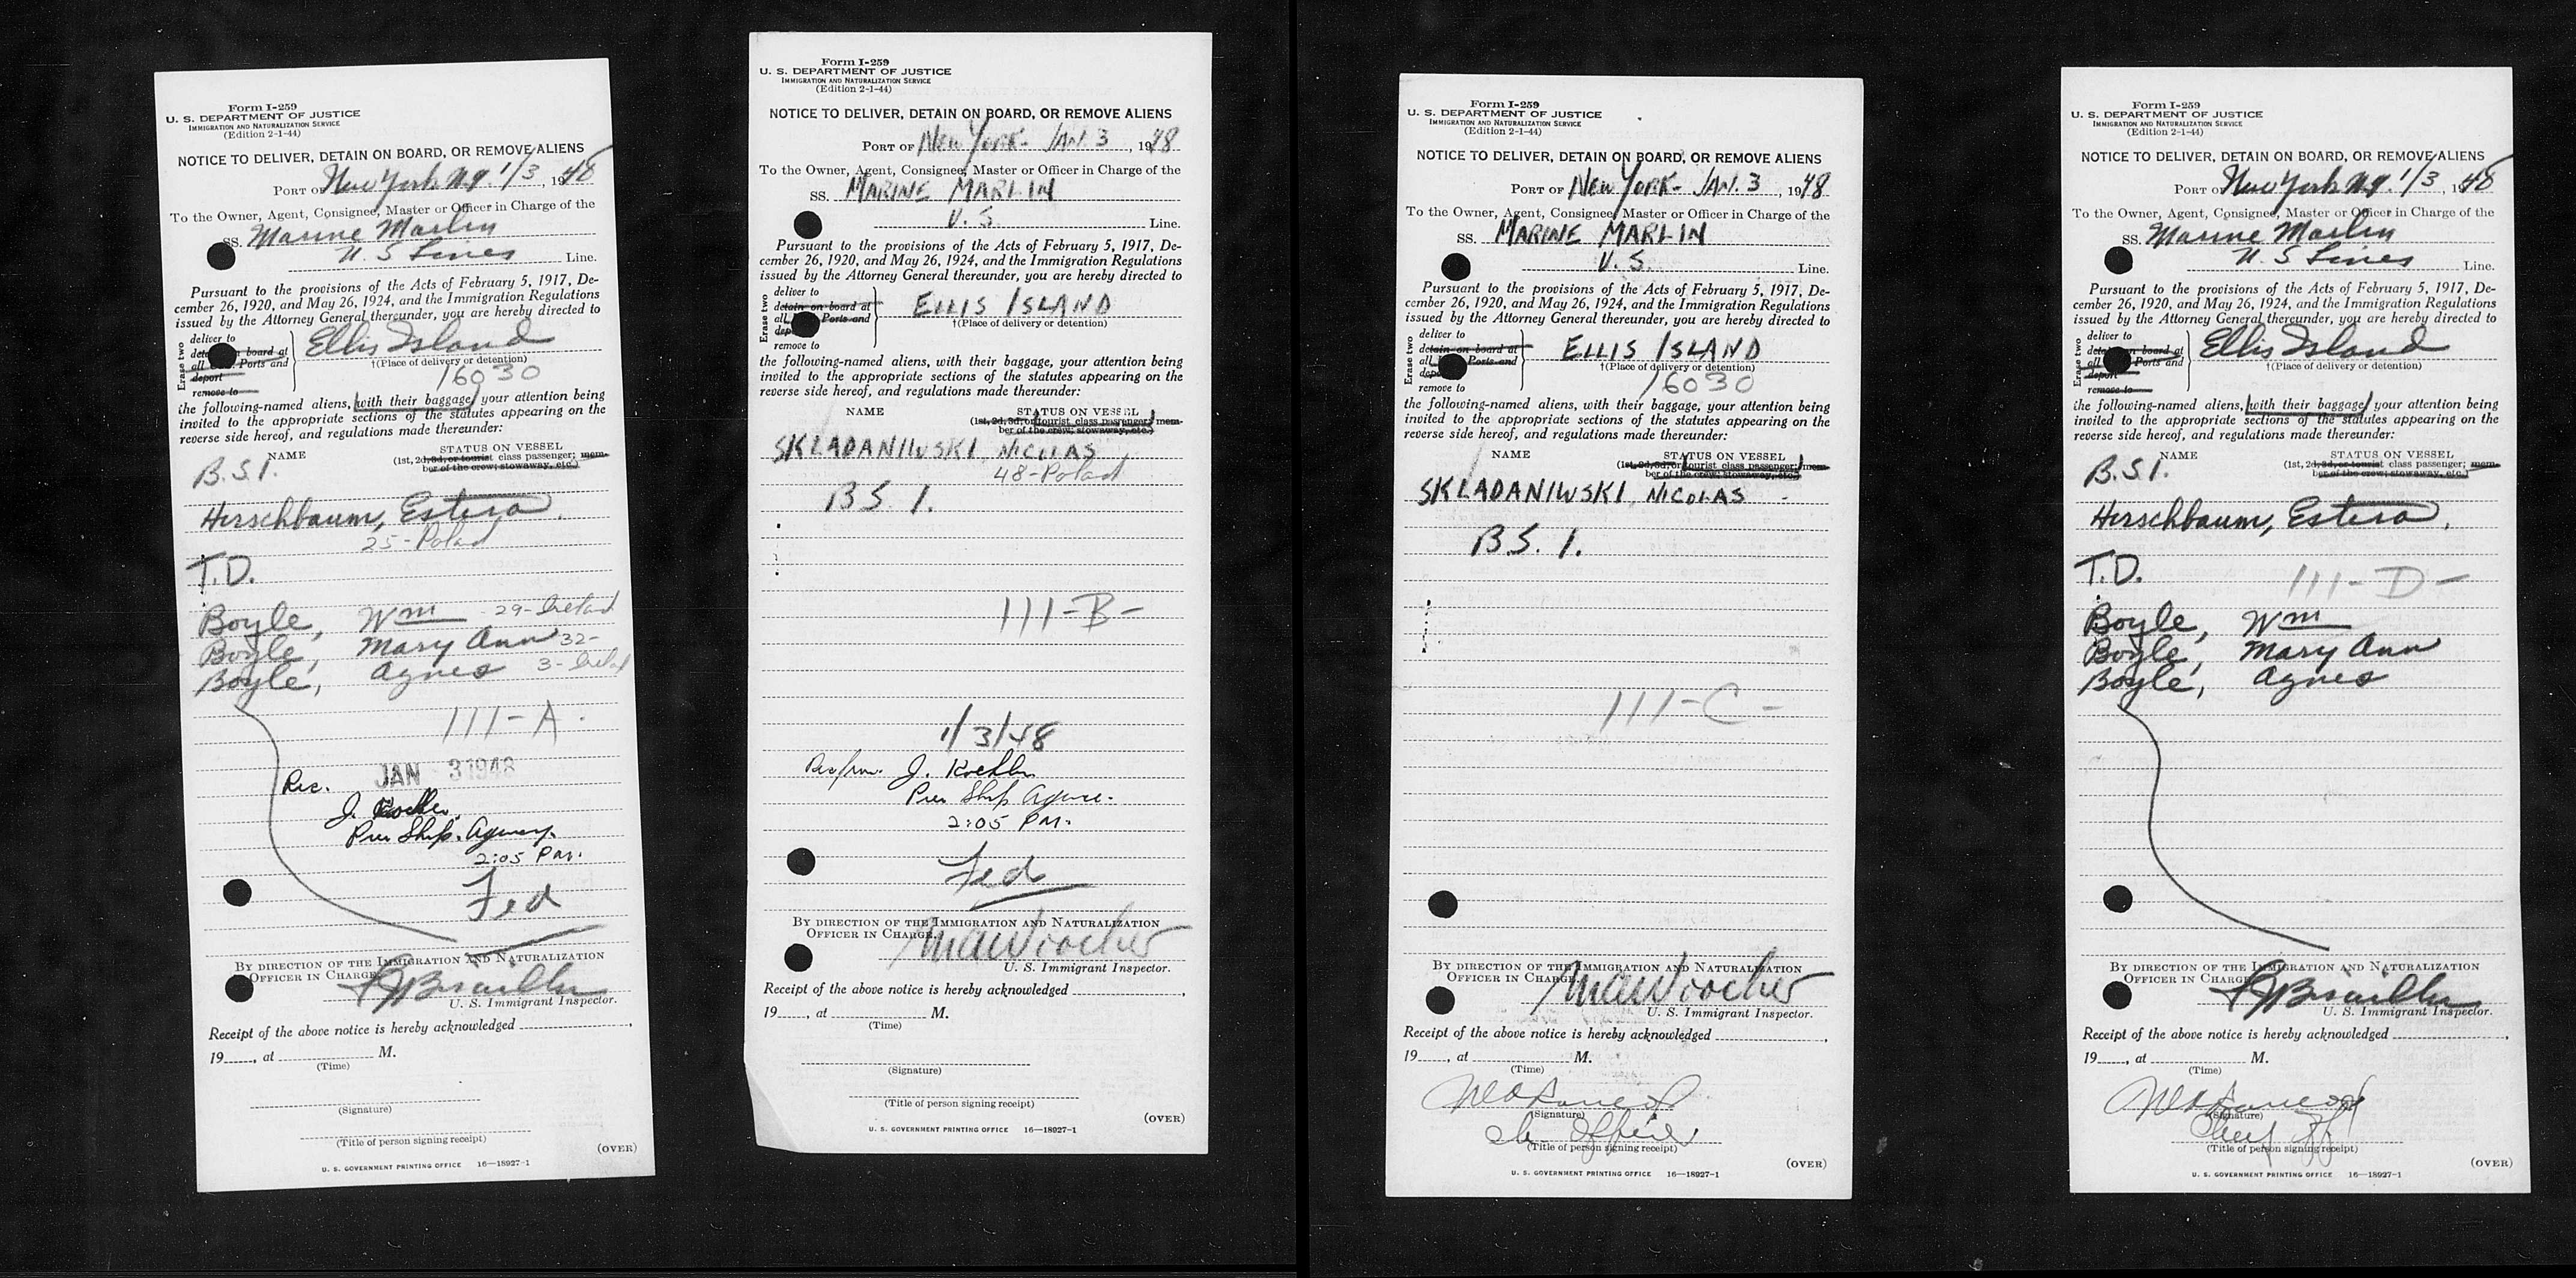 Form I-259
U. S. DEPARTMENT OF JUSTICE
IMMIGRATION AND NATURALIZATION SERVICE
(Edition 2-1-44)
NOTICE TO DELIVER, DETAIN ON BOARD, OR REMOVE ALIENS
PORT OF New York N.Y. 1/3, 1948
To the Owner, Agent, Consignee, Master or Officer in Charge of the
SS. Marine Marlin
U. S Lines Line.
Pursuant to the provisions of the Acts of February 5, 1917, De-
cember 26, 1920, and May 26, 1924, and the Immigration Regulations
issued by the Attorney General thereunder, you are hereby directed to
Erase two
deliver to
board at
all Ports and
deport
remove to
Ellis Island
†(Place of delivery or detention)
16030
the following-named aliens, with their baggage, your attention being
invited to the appropriate sections of the statutes appearing on the
reverse side hereof, and regulations made thereunder:
NAME STATUS ON VESSEL
(1st, 2d, 3d, or tourist class passenger; mem-
ber of the crew; stowaway, etc.)
B.S.I.
Hirschbaum, Estera.
25-Poland
T.D.
Boyle, Wm 29-Ireland
Boyle, Mary Ann 32-
Boyle, Agnes 3-Ireland
111-A.
JAN 3 1948
Rec.
J.
Pier Ship. Agency.
2:05 PM.
Fed
BY DIRECTION OF THE IMMIGRATION AND NATURALIZATION
OFFICER IN CHARGE
U. S. Immigrant Inspector.
Receipt of the above notice is hereby acknowledged
19, at M.
(Time)
(Signature)
(Title of person signing receipt)
(OVER)
U. S. GOVERNMENT PRINTING OFFICE 16—18927-1
Form I-259
U. S. DEPARTMENT OF JUSTICE
IMMIGRATION AND NATURALIZATION SERVICE
(Edition 2-1-44)
NOTICE TO DELIVER, DETAIN ON BOARD, OR REMOVE ALIENS
PORT OF New York- JAN. 3, 1948
To the Owner, Agent, Consignee, Master or Officer in Charge of the
SS. MARINE MARLIN
U. S. Line.
Pursuant to the provisions of the Acts of February 5, 1917, De-
cember 26, 1920, and May 26, 1924, and the Immigration Regulations
issued by the Attorney General thereunder, you are hereby directed to
Erase two
deliver to
detain on board at
all Ports and
remove to
ELLIS ISLAND
†(Place of delivery or detention)
the following-named aliens, with their baggage, your attention being
invited to the appropriate sections of the statutes appearing on the
reverse side hereof, and regulations made thereunder:
NAME STATUS ON VESSEL
(1st, 2d, 3d, or tourist class passenger; mem-
ber of the crew; stowaway, etc.)
SKLADANIWSKI, NICOLAS
48-Poland
B.S.I.
111-B-
1/3/48
J. Koehler
Pier Ship
2:05 PM.
Fed
BY DIRECTION OF THE IMMIGRATION AND NATURALIZATION
OFFICER IN CHARGE.
U. S. Immigrant Inspector.
Receipt of the above notice is hereby acknowledged
19, at M.
(Time)
(Signature)
(Title of person signing receipt)
(OVER)
U. S. GOVERNMENT PRINTING OFFICE 16—18927-1
Form I-259
U. S. DEPARTMENT OF JUSTICE
IMMIGRATION AND NATURALIZATION SERVICE
(Edition 2-1-44)
NOTICE TO DELIVER, DETAIN ON BOARD, OR REMOVE ALIENS
PORT OF New York- JAN. 3, 1948
To the Owner, Agent, Consignee, Master or Officer in Charge of the
SS. MARINE MARLIN
U. S. Line.
Pursuant to the provisions of the Acts of February 5, 1917, De-
cember 26, 1920, and May 26, 1924, and the Immigration Regulations
issued by the Attorney General thereunder, you are hereby directed to
Erase two
deliver to
detain on board at
all Ports and
remove to
ELLIS ISLAND
†(Place of delivery or detention)
16030
the following-named aliens, with their baggage, your attention being
invited to the appropriate sections of the statutes appearing on the
reverse side hereof, and regulations made thereunder:
NAME STATUS ON VESSEL
(1st, 2d, 3d, or tourist class passenger; mem-
ber of the crew; stowaway, etc.)
SKLADANIWSKI, NICOLAS -
B.S.I.
111-C-
BY DIRECTION OF THE IMMIGRATION AND NATURALIZATION
OFFICER IN CHARGE
U. S. Immigrant Inspector.
Receipt of the above notice is hereby acknowledged
19, at M.
(Time)
(Signature)
Ch Officer
(Title of person signing receipt)
(OVER)
U. S. GOVERNMENT PRINTING OFFICE 16—18927-1
Form I-259
U. S. DEPARTMENT OF JUSTICE
IMMIGRATION AND NATURALIZATION SERVICE
(Edition 2-1-44)
NOTICE TO DELIVER, DETAIN ON BOARD, OR REMOVE ALIENS
PORT OF New York N.Y. 1/3, 1948
To the Owner, Agent, Consignee, Master or Officer in Charge of the
SS. Marine Marlin
U. S Lines Line.
Pursuant to the provisions of the Acts of February 5, 1917, De-
cember 26, 1920, and May 26, 1924, and the Immigration Regulations
issued by the Attorney General thereunder, you are hereby directed to
Erase two
deliver to
on board at
all Ports and
deport
remove to
Ellis Island
†(Place of delivery or detention)
the following-named aliens, with their baggage, your attention being
invited to the appropriate sections of the statutes appearing on the
reverse side hereof, and regulations made thereunder:
NAME STATUS ON VESSEL
(1st, 2d, 3d, or tourist class passenger; mem-
ber of the crew; stowaway, etc.)
B.S.I.
Hirschbaum, Estera.
T.D.
111-D-
Boyle, Wm
Boyle, Mary Ann
Boyle, Agnes
BY DIRECTION OF THE IMMIGRATION AND NATURALIZATION
OFFICER IN CHARGE
U. S. Immigrant Inspector.
Receipt of the above notice is hereby acknowledged
19, at M.
(Time)
(Signature)
Chief Off
(Title of person signing receipt)
(OVER)
U. S. GOVERNMENT PRINTING OFFICE 16—18927-1